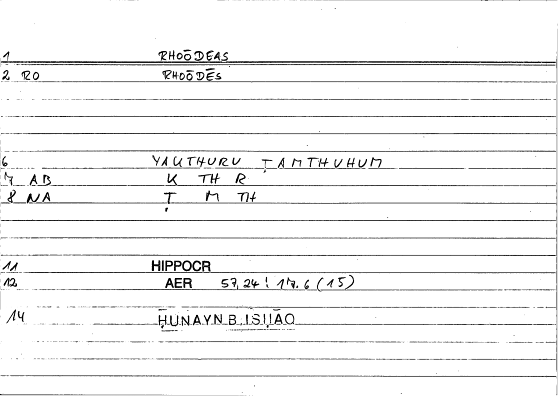 1 RHOŌDEAS
2 RO RHOŌDĒS
6 YAKTHURU ṬAMTHUHUM
7 AB K TH R
8 NA Ṭ M TH
11 HIPPOCR
12 AER 57,24 ! 17.6 (15)
14 ḤUNAYN B. ISḤĀQ